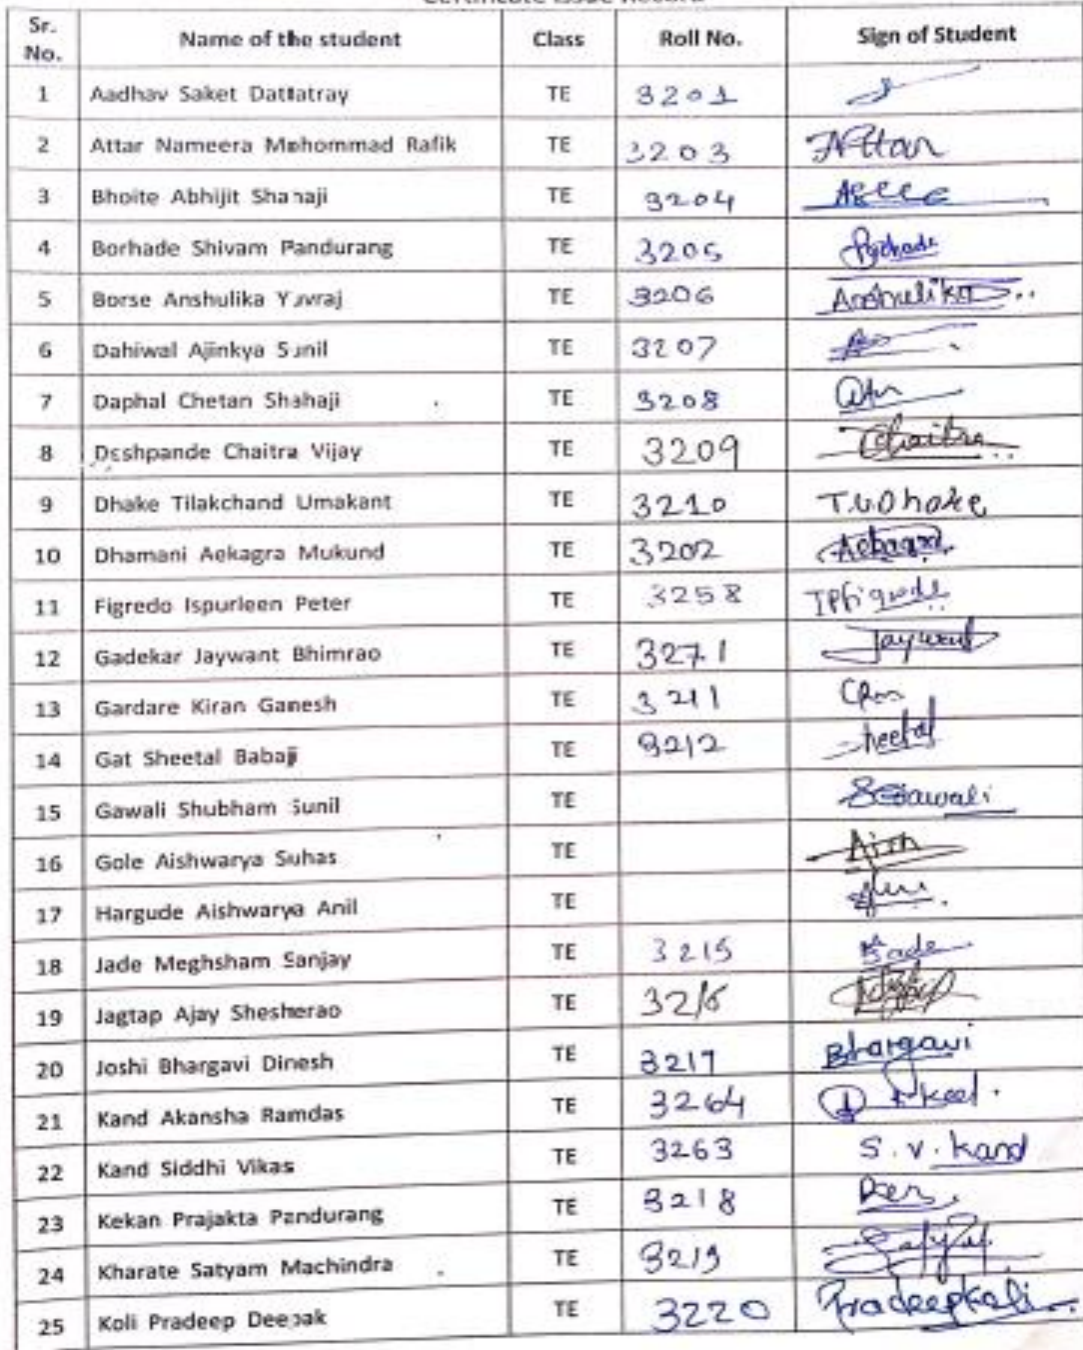 Certificate Issue Record
Sr. No. Name of the student Class Roll No. Sign of Student
1 Aadhav Saket Dattatray TE 3201
2 Attar Nameera Mohommad Rafik TE 3203 Attar
3 Bhoite Abhijit Shahaji TE 3204
4 Borhade Shivam Pandurang TE 3205
5 Borse Anshulika Yuvraj TE 3206 Anshulika
6 Dahiwal Ajinkya Sunil TE 3207
7 Daphal Chetan Shahaji TE 3208
8 Deshpande Chaitra Vijay TE 3209 Chaitra
9 Dhake Tilakchand Umakant TE 3210 T.U.Dhake
10 Dhamani Aekagra Mukund TE 3202 Aekagra
11 Figredo Ispurleen Peter TE 3258
12 Gadekar Jaywant Bhimrao TE 3271 Jaywant
13 Gardare Kiran Ganesh TE 3211
14 Gat Sheetal Babaji TE 3212 Sheetal
15 Gawali Shubham Sunil TE SGawali
16 Gole Aishwarya Suhas TE
17 Hargude Aishwarya Anil TE
18 Jade Meghsham Sanjay TE 3215
19 Jagtap Ajay Shesherao TE 3216
20 Joshi Bhargavi Dinesh TE 3217 Bhargavi
21 Kand Akansha Ramdas TE 3264
22 Kand Siddhi Vikas TE 3263 S.V.Kand
23 Kekan Prajakta Pandurang TE 3218
24 Kharate Satyam Machindra TE 3219
25 Koli Pradeep Deepak TE 3220 PradeepKoli